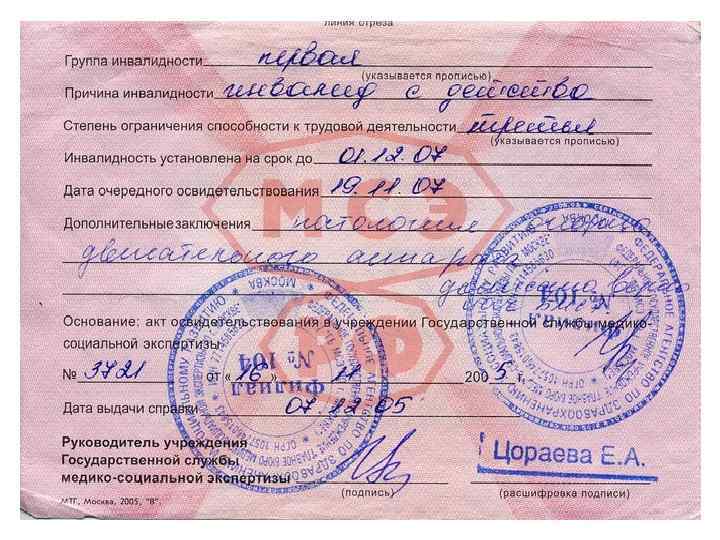 линия отреза
Группа инвалидности первая
(указывается прописью)
Причина инвалидности инвалид с детства
Степень ограничения способности к трудовой деятельности третья
(указывается прописью)
Инвалидность установлена на срок до 01.12.07
Дата очередного освидетельствования 19.11.07
МСЭ
Дополнительные заключения патология опорно
двигательного аппарата
Основание: акт освидетельствования в учреждении Государственной службы медико-
социальной экспертизы
РФ
№ 3721 от « 16 » 11 200 5 г.
Дата выдачи справки 07.12.05
Филиал
№ 104
МОСКВА
Руководитель учреждения
Государственной службы
медико-социальной экспертизы
(подпись)
Цораева Е.А.
(расшифровка подписи)
МТГ, Москва, 2005, "В".